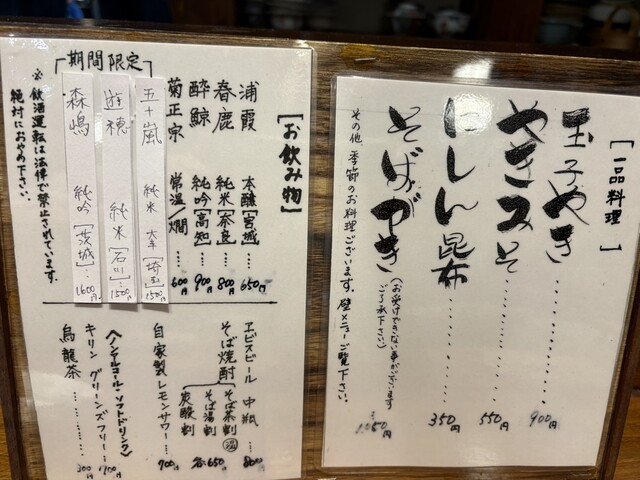 [一品料理]
玉子やき ‥‥‥‥ 900円
やきみそ ‥‥‥‥ 550円
にしん昆布 ‥‥‥ 350円
そばがき (お受けできない事がございます ご了承下さい) 1,050円
その他、季節のお料理ございます。壁メニューご覧下さい。
[お飲み物]
浦霞 本醸[宮城]‥‥ 650円
春鹿 純米[奈良]‥‥ 800円
酔鯨 純吟[高知]‥‥ 900円
菊正宗 常温/燗 ‥‥ 600円
期間限定
五十嵐 純米 [埼玉] 1500円
遊穂 純米[石川]‥‥ 1500円
森嶋 純吟[茨城]‥‥ 1600円
※飲酒運転は法律で禁止されています。
絶対におやめ下さい。
ヱビスビール 中瓶 ‥‥ 800円
そば焼酎
そば茶割 温
そば湯割
炭酸割
各‥650円
自家製レモンサワー‥‥ 700円
〈ノンアルコール・ソフトドリンク〉
キリン グリーンズフリー‥‥ 700円
烏龍茶 ‥‥‥‥ 300円